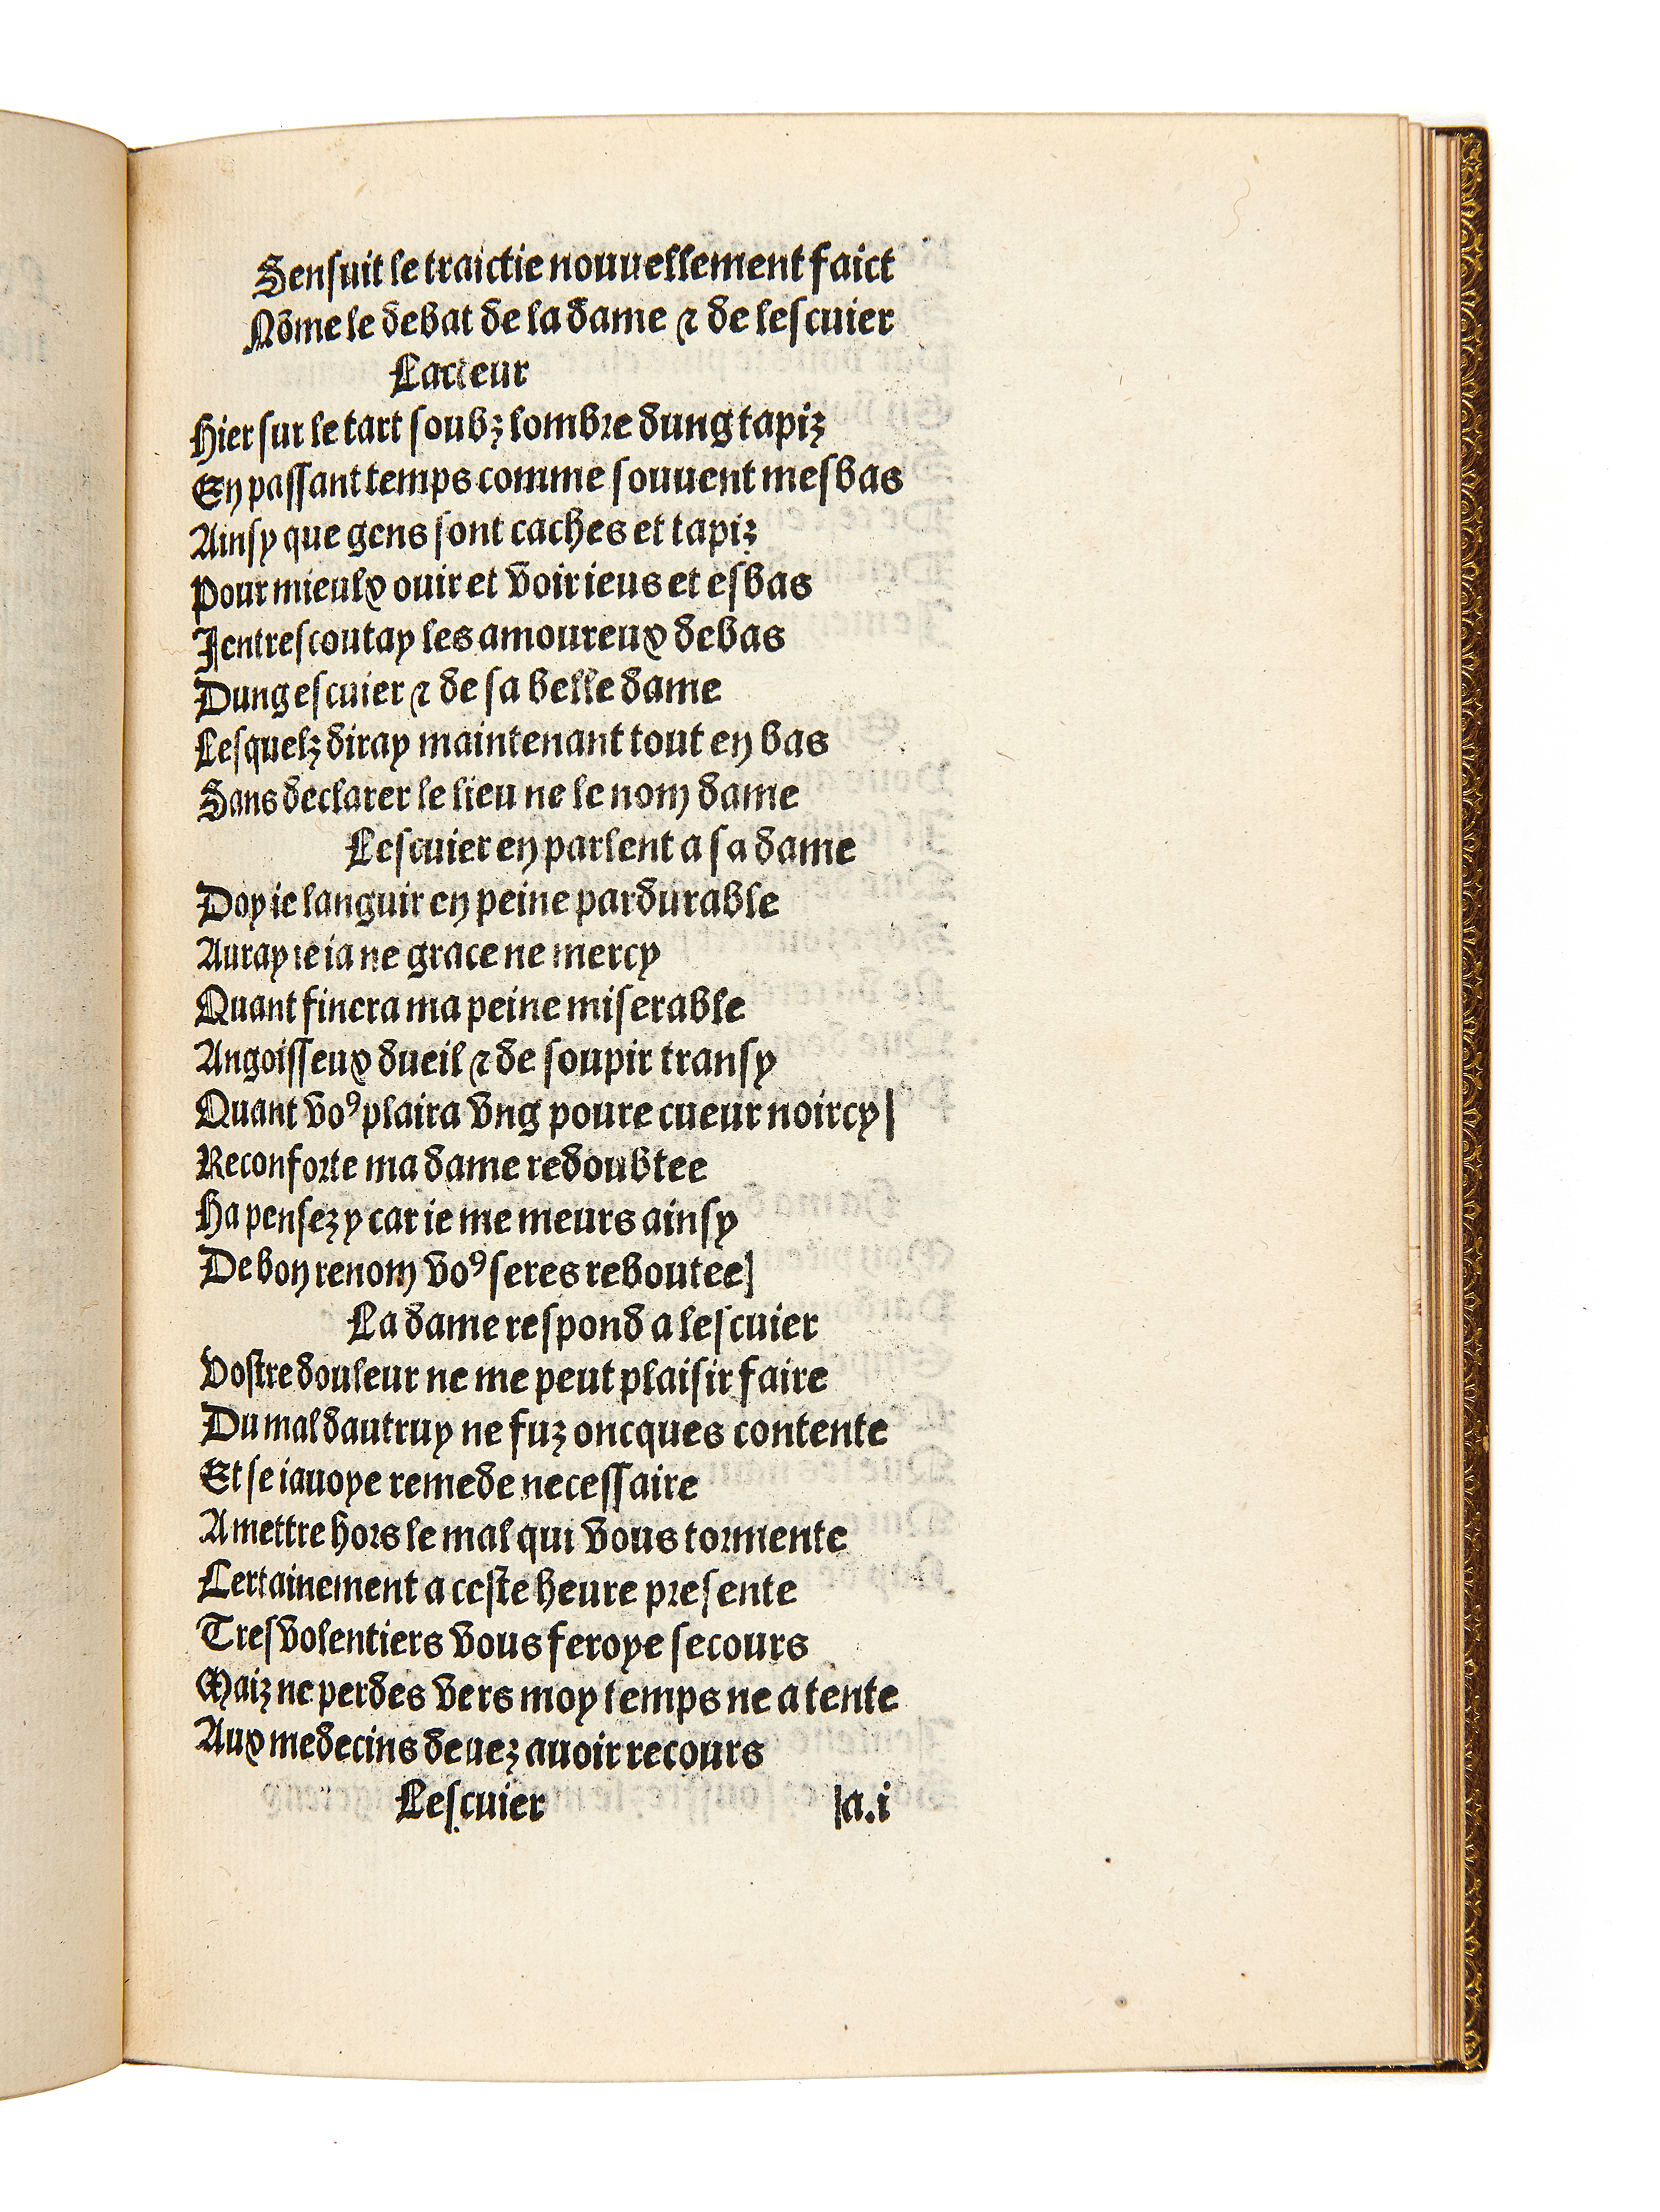 Sensuit le traictie nouuellement faict
Nõme le debat de la dame ⁊ de lescuier
Lacteur
Hier sur le tart soubz lombre dung tapiz
En passant temps comme souuent mesbas
Ainsy que gens sont caches et tapiz
Pour mieulx ouir et voir ieus et esbas
Jentrescoutay les amoureux debas
Dung escuier ⁊ de sa belle dame
Lesquelz diray maintenant tout en bas
Sans declarer le lieu ne le nom dame
Lescuier en parlent a sa dame
Doy ie languir en peine pardurable
Auray ie ia ne grace ne mercy
Quant finera ma peine miserable
Angoisseux dueil ⁊ de soupir transy
Quant voꝰ plaira vng poure cueur noircy|
Reconforte ma dame redoubtee
Ha pensez y car ie me meurs ainsy
De bon renom voꝰ seres reboutee]
La dame respond a lescuier
Vostre douleur ne me peut plaisir faire
Du mal dautruy ne fuz oncques contente
Et se iauoye remede necessaire
A mettre hors le mal qui vous tormente
Certainement a ceste heure presente
Tres volentiers vous feroye secours
Maiz ne perdes vers moy temps ne atente
Aux medecins deuez auoir recours
Lescuier |a.i